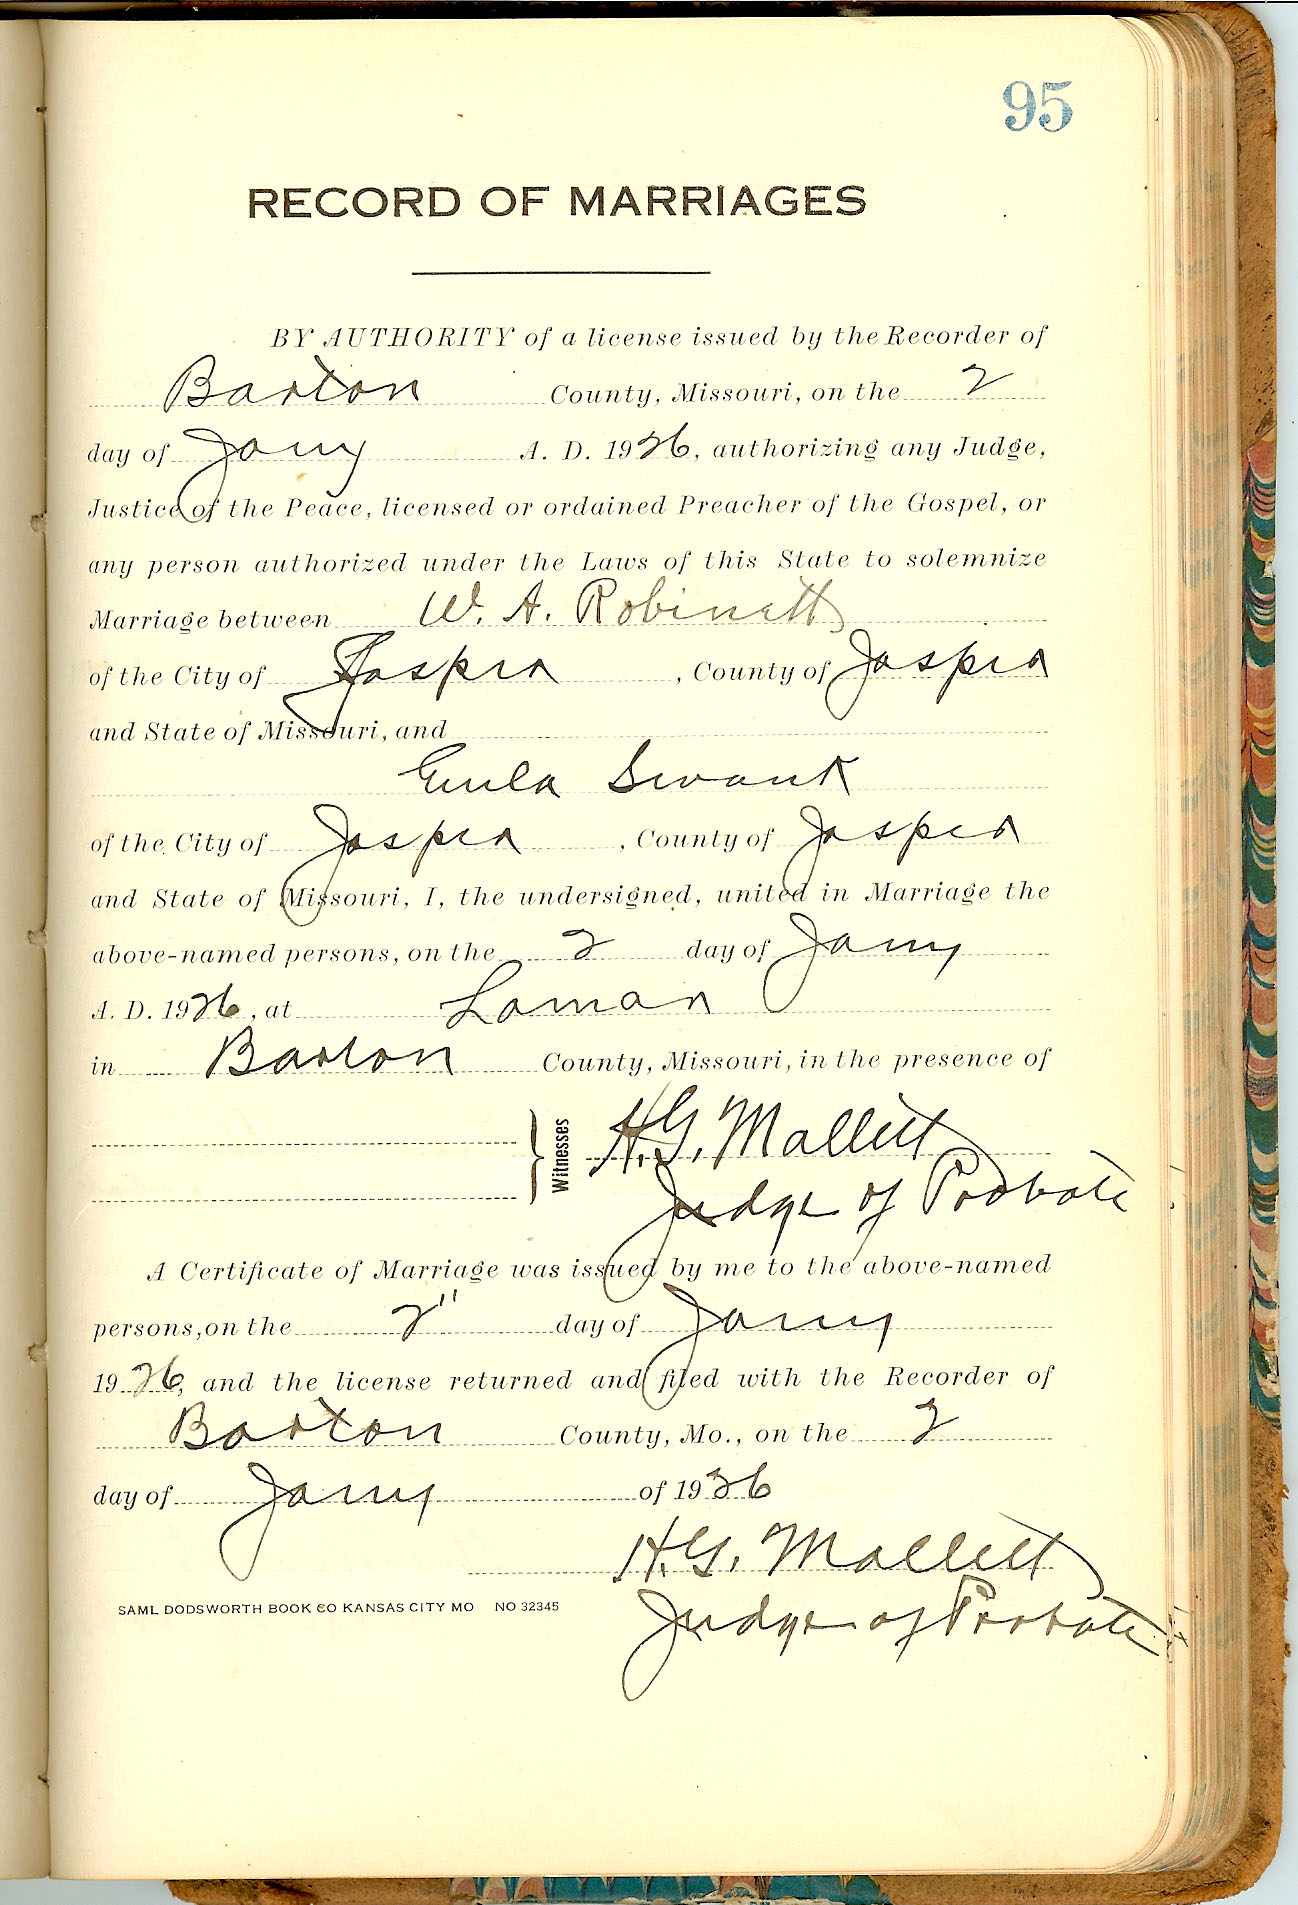 95
RECORD OF MARRIAGES
BY AUTHORITY of a license issued by the Recorder of
Barton County, Missouri, on the 2
day of Jany A. D. 1926, authorizing any Judge,
Justice of the Peace, licensed or ordained Preacher of the Gospel, or
any person authorized under the Laws of this State to solemnize
Marriage between W. A. Robinett
of the City of Jasper, County of Jasper
and State of Missouri, and
Eula Swank
of the City of Jasper, County of Jasper
and State of Missouri, I, the undersigned, united in Marriage the
above-named persons, on the 2 day of Jany
A. D. 1926, at Lamar
in Barton County, Missouri, in the presence of
Witnesses H. G. Mallett
Judge of Probate
A Certificate of Marriage was issued by me to the above-named
persons, on the 2" day of Jany
1926, and the license returned and filed with the Recorder of
Barton County, Mo., on the 2
day of Jany of 1926
H. G. Mallett
SAML DODSWORTH BOOK CO KANSAS CITY MO NO 32345
Judge of Probate